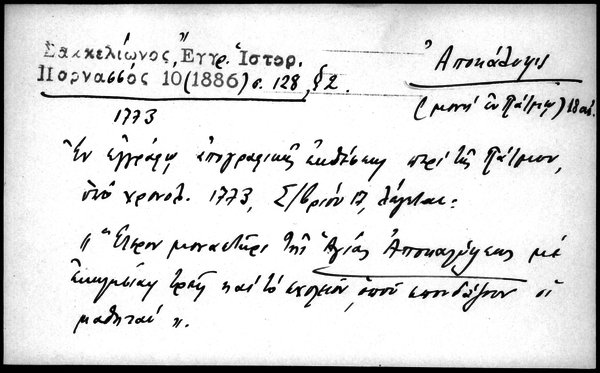 Σακκελιώνος, Ἔγγρ. Ἱστορ.
Παρνασσός 10 (1886) σ. 128, § 2.
Ἀποκάλυψις
(μονή ἐν Πάτμῳ) 18 αἰ.
1773
Ἐν ἐγγράφῳ ἀπογραφικῆς ἐκθέσεως περί τῆς Πάτμου,
ὑπό χρονολ. 1773, Σ/βρίου 17, λέγεται:
„ Ἕτερον μοναστῆρι τῆς Ἁγίας Ἀποκαλύψεως μέ
ἐκκλησίας τρεῖς καί τό σχολεῖον, ὁποῦ σπουδάζουν οἱ
μαθηταί ".